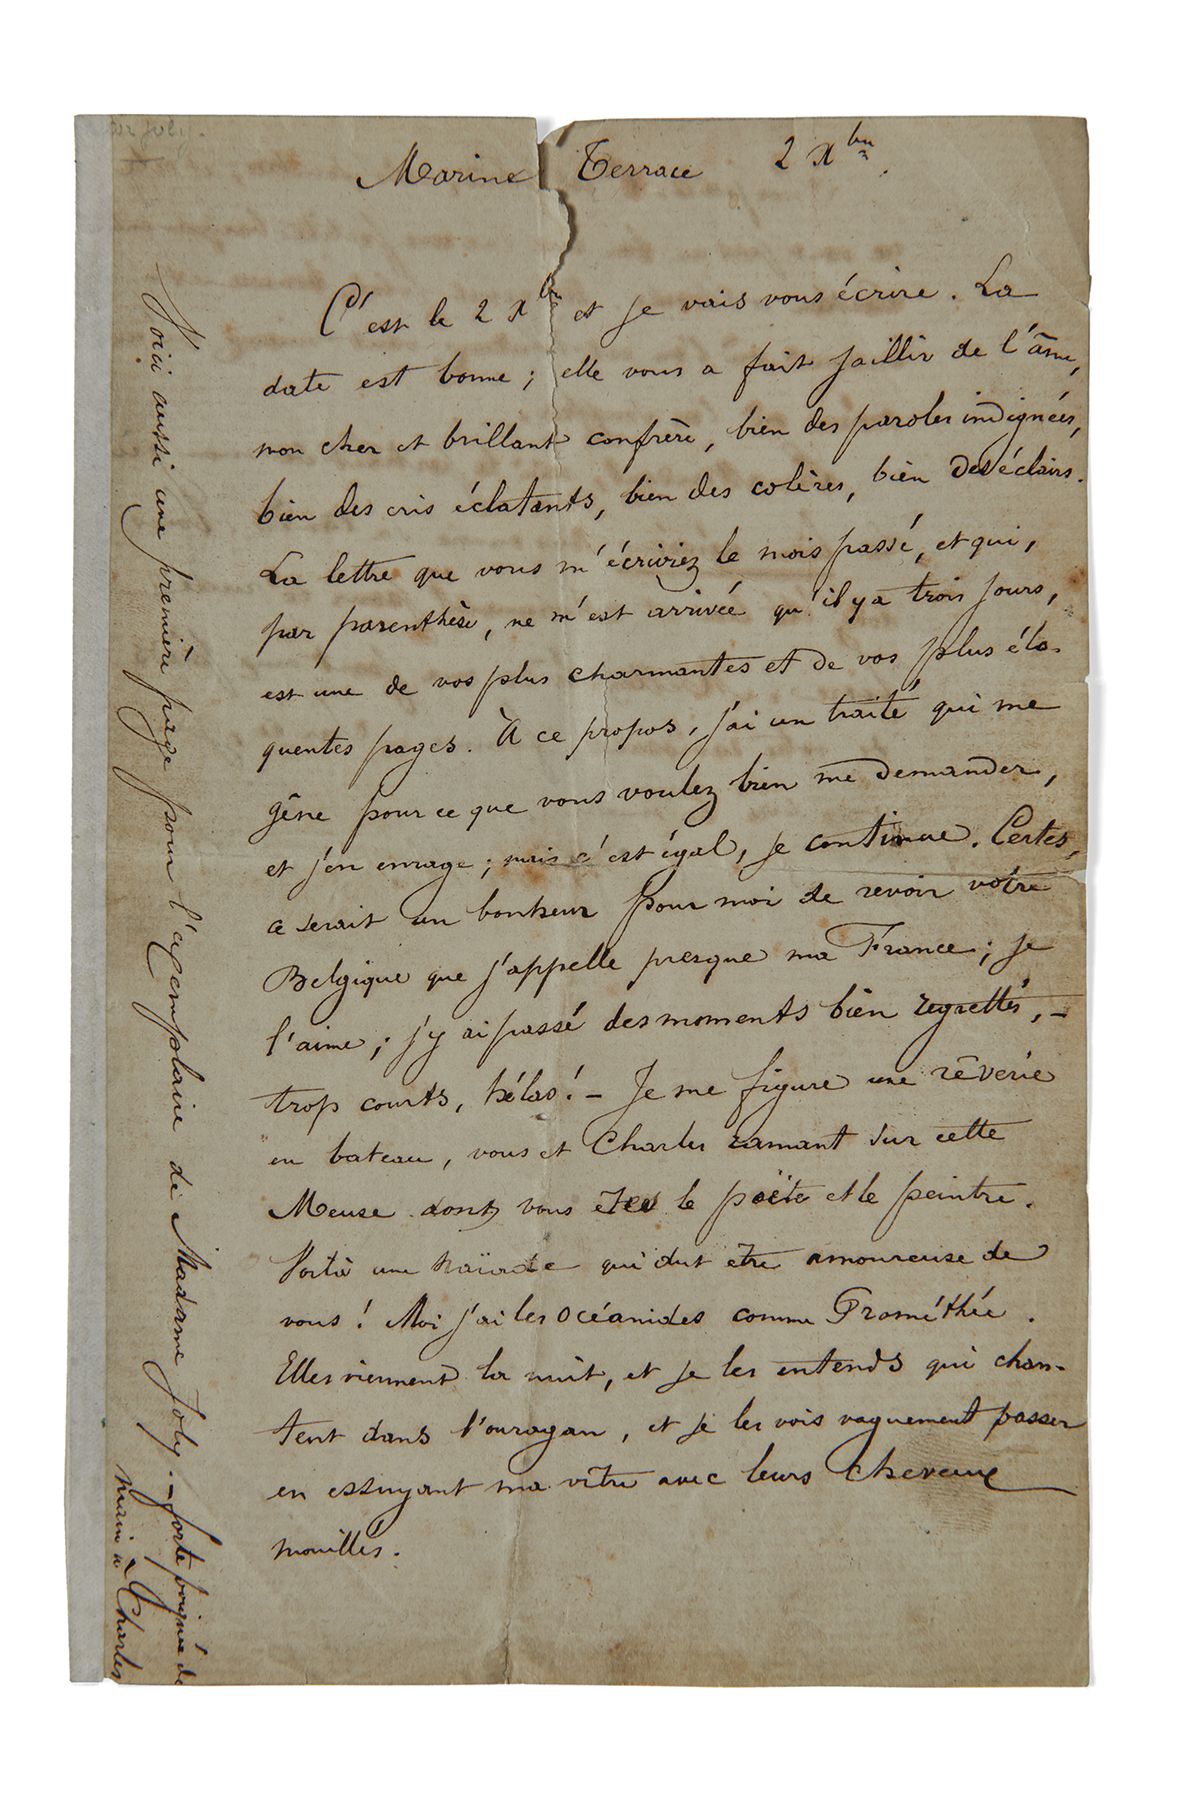 Marine Terrace 2 Xbre.
C'est le 2 Xbre et je vais vous écrire. La
date est bonne ; elle vous a fait jaillir de l'âme,
mon cher et brillant confrère, bien des paroles indignées,
bien des cris éclatants, bien des colères, bien des éclairs.
La lettre que vous m'écriviez le mois passé, et qui,
par parenthèse, ne m'est arrivée qu'il y a trois jours,
est une de vos plus charmantes et de vos plus élo-
quentes pages. À ce propos, j'ai un traité qui me
gêne pour ce que vous voulez bien me demander,
et j'en enrage ; mais c'est égal, je continue. Certes,
ce serait un bonheur pour moi de revoir votre
Belgique que j'appelle presque ma France ; je
l'aime ; j'y ai passé des moments bien regrettés, –
trop courts, hélas ! – Je me figure une rêverie
en bateau, vous et Charles ramant sur cette
Meuse dont vous êtes le poëte et le peintre.
Voilà une naïade qui dut être amoureuse de
vous ! Moi j'ai les océanides comme Prométhée.
Elles viennent la nuit, et je les entends qui chan-
tent dans l'ouragan, et je les vois vaguement passer
en essuyant ma vitre avec leurs cheveux
mouillés.
Voici aussi une première page pour l'exemplaire de Madame Joly. – forte poignée de
main à Charles